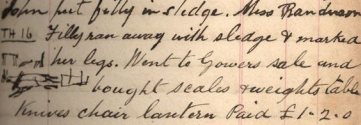 John put filly in sledge. Miss
TH 16 Filly ran away with sledge & marked
her legs. Went to Gowers sale and
bought scales & weights table
Knives chair lantern Paid £1-2-0